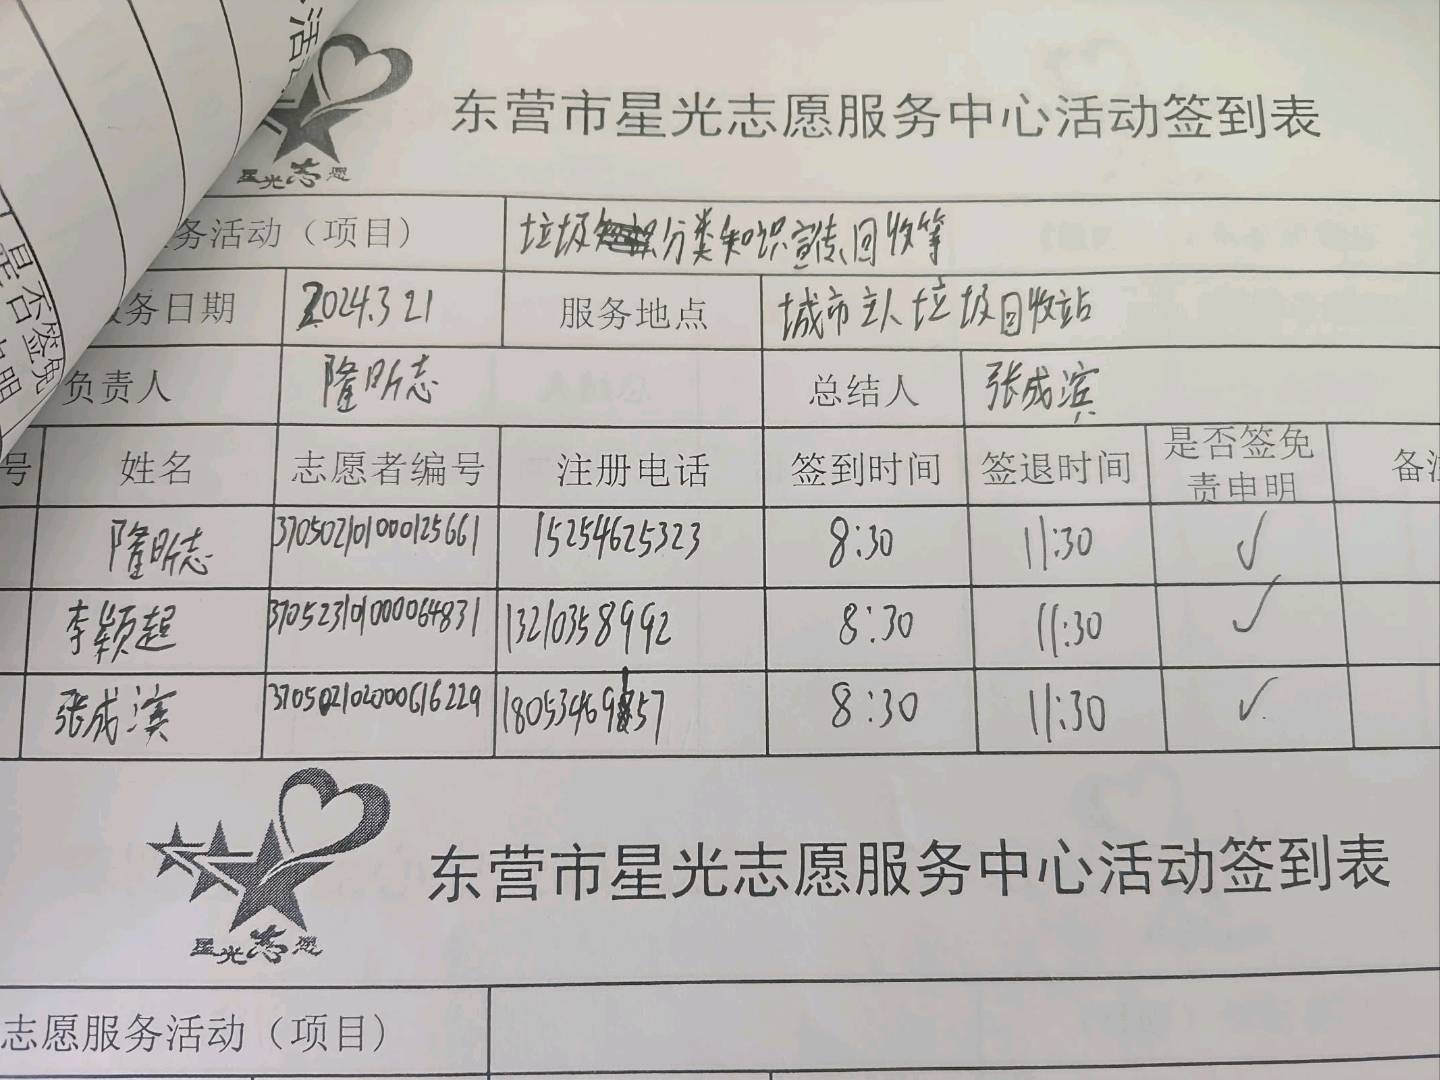 东营市星光志愿服务中心活动签到表
星光志愿
务活动（项目） 垃圾分类知识宣传、回收等
务日期 2024.3.21 服务地点 城市主人垃圾回收站
负责人 隆昕志 总结人 张成滨
号 姓名 志愿者编号 注册电话 签到时间 签退时间 是否签免责申明 备注
隆昕志 370502101000125661 15254625323 8:30 11:30 ✓
李颖起 370523101000064831 13210358992 8:30 11:30 ✓
张成滨 370502102000616229 8:30 11:30 ✓
东营市星光志愿服务中心活动签到表
星光志愿
志愿服务活动（项目）
是否签免